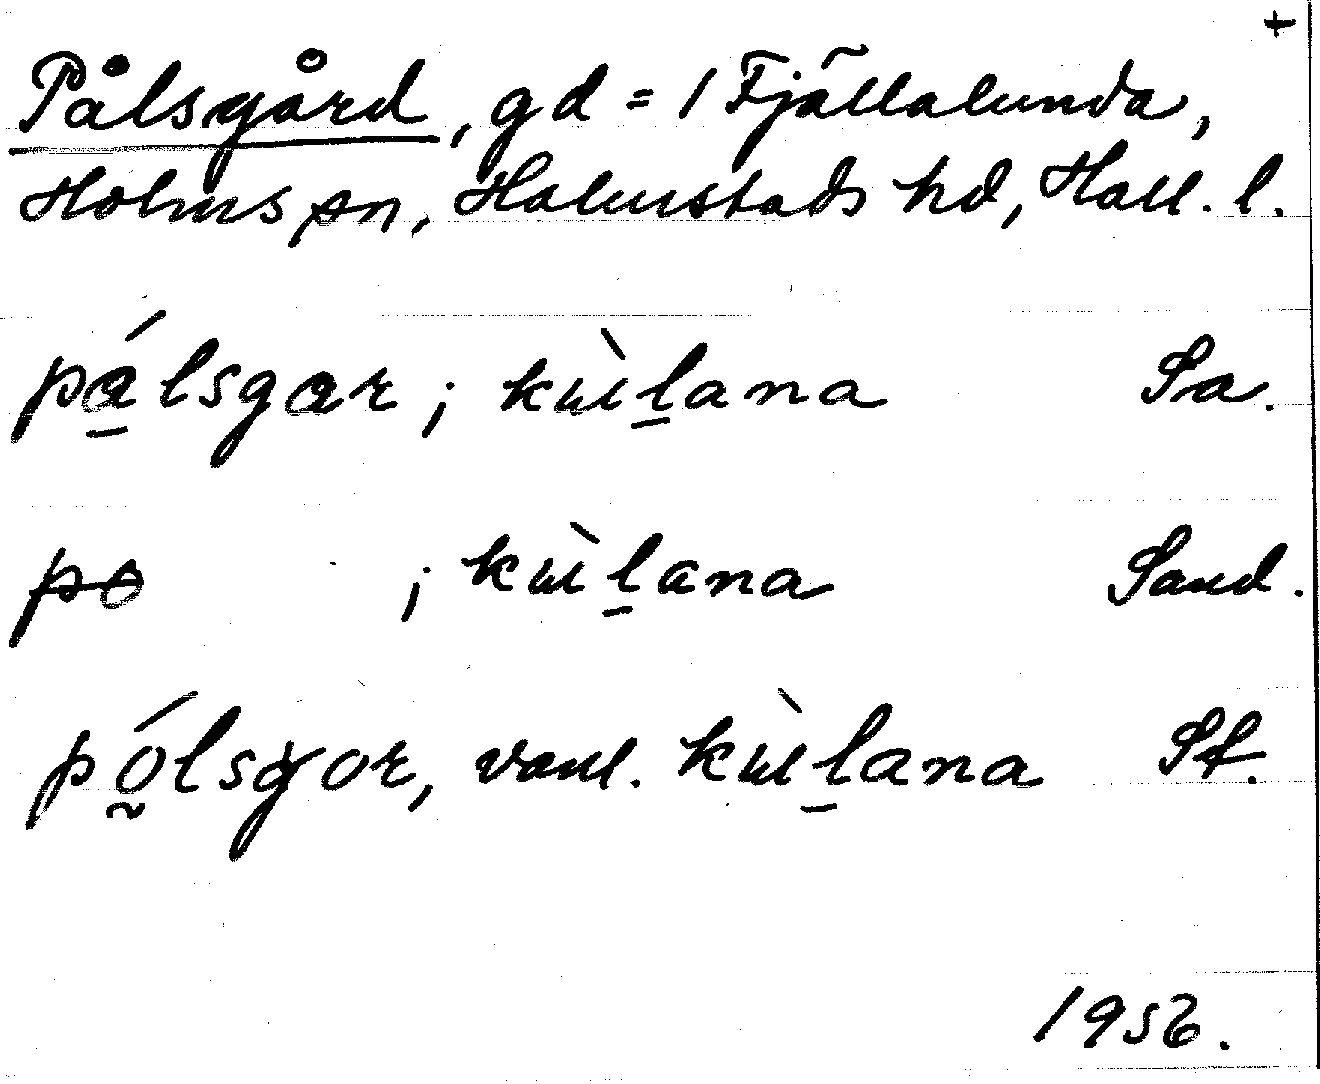 +
Pålsgård, gd = 1 Fjällalunda,
Holms sn, Halmstads hd, Hall. l.
pá̱lsgar ; kùḻana Sa.
po ; kùḻana Sand.
pó̰lsgor, vanl. kùḻana Sf.
1956.